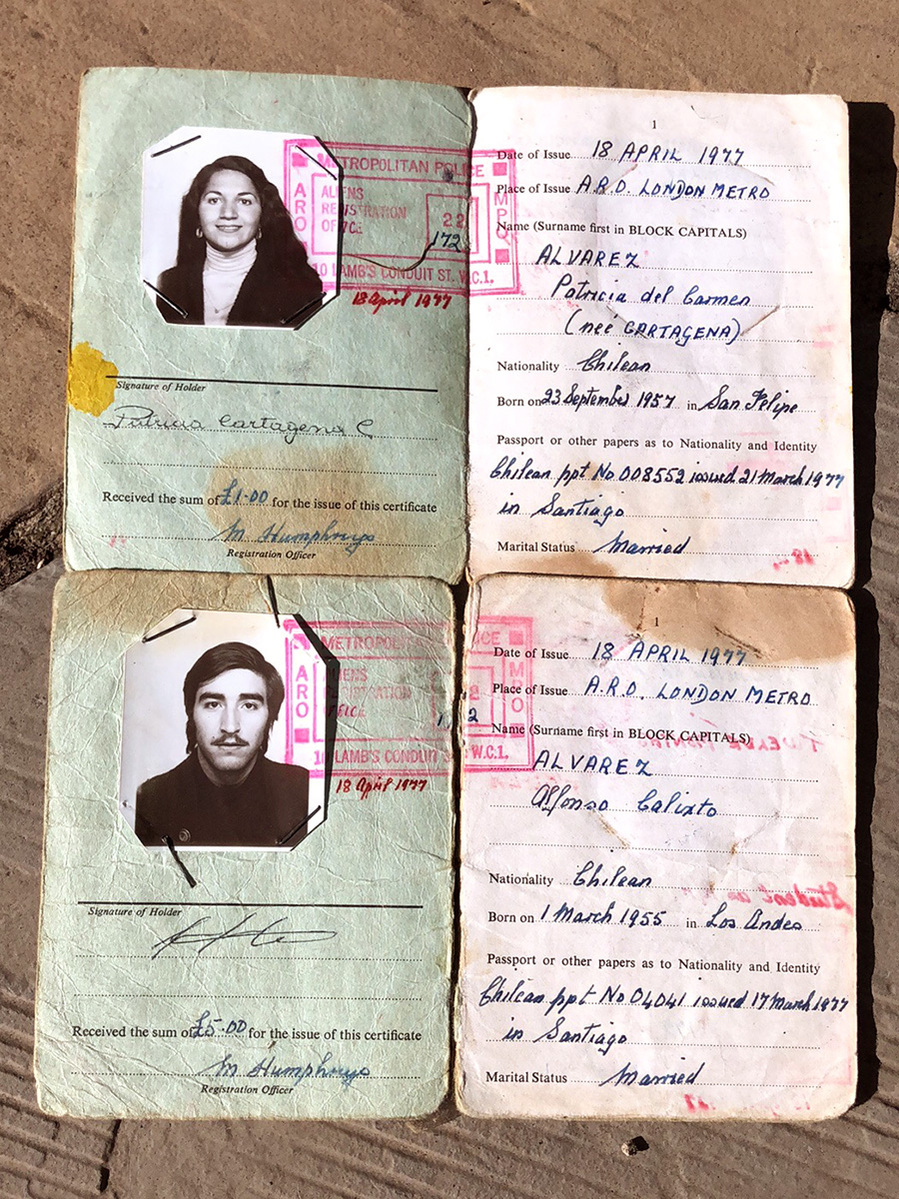 METROPOLITAN POLICE
ARO
MPO
ALIENS
REGISTRATION
OFFICE
22
172
10 LAMB'S CONDUIT ST. W.C.1.
18 April 1977
Signature of Holder
Patricia Cartagena C
Received the sum of £1-00 for the issue of this certificate
M Humphrys
Registration Officer
1
Date of Issue 18 APRIL 1977
Place of Issue A.R.O. LONDON METRO
Name (Surname first in BLOCK CAPITALS)
ALVAREZ
Patricia del Carmen
(nee CARTAGENA)
Nationality Chilean
Born on 23 September 1957 in San Felipe
Passport or other papers as to Nationality and Identity
Chilean ppt No 008552 issued 21 March 1977
in Santiago
Marital Status Married
METROPOLIT CE
ARO
MRO
IENS
GISTRATION
10 LAMB'S CONDUIT S W.C.1.
18 April 1977
Signature of Holder
Received the sum of £5-00 for the issue of this certificate
M Humphrys
Registration Officer
1
Date of Issue 18 APRIL 1977
Place of Issue A.R.O. LONDON METRO
Name (Surname first in BLOCK CAPITALS)
ALVAREZ
Alfonso Calixto
Nationality Chilean
Born on 1 March 1955 in Los Andes
Passport or other papers as to Nationality and Identity
Chilean ppt No 04041 issued 17 March 1977
in Santiago
Marital Status Married